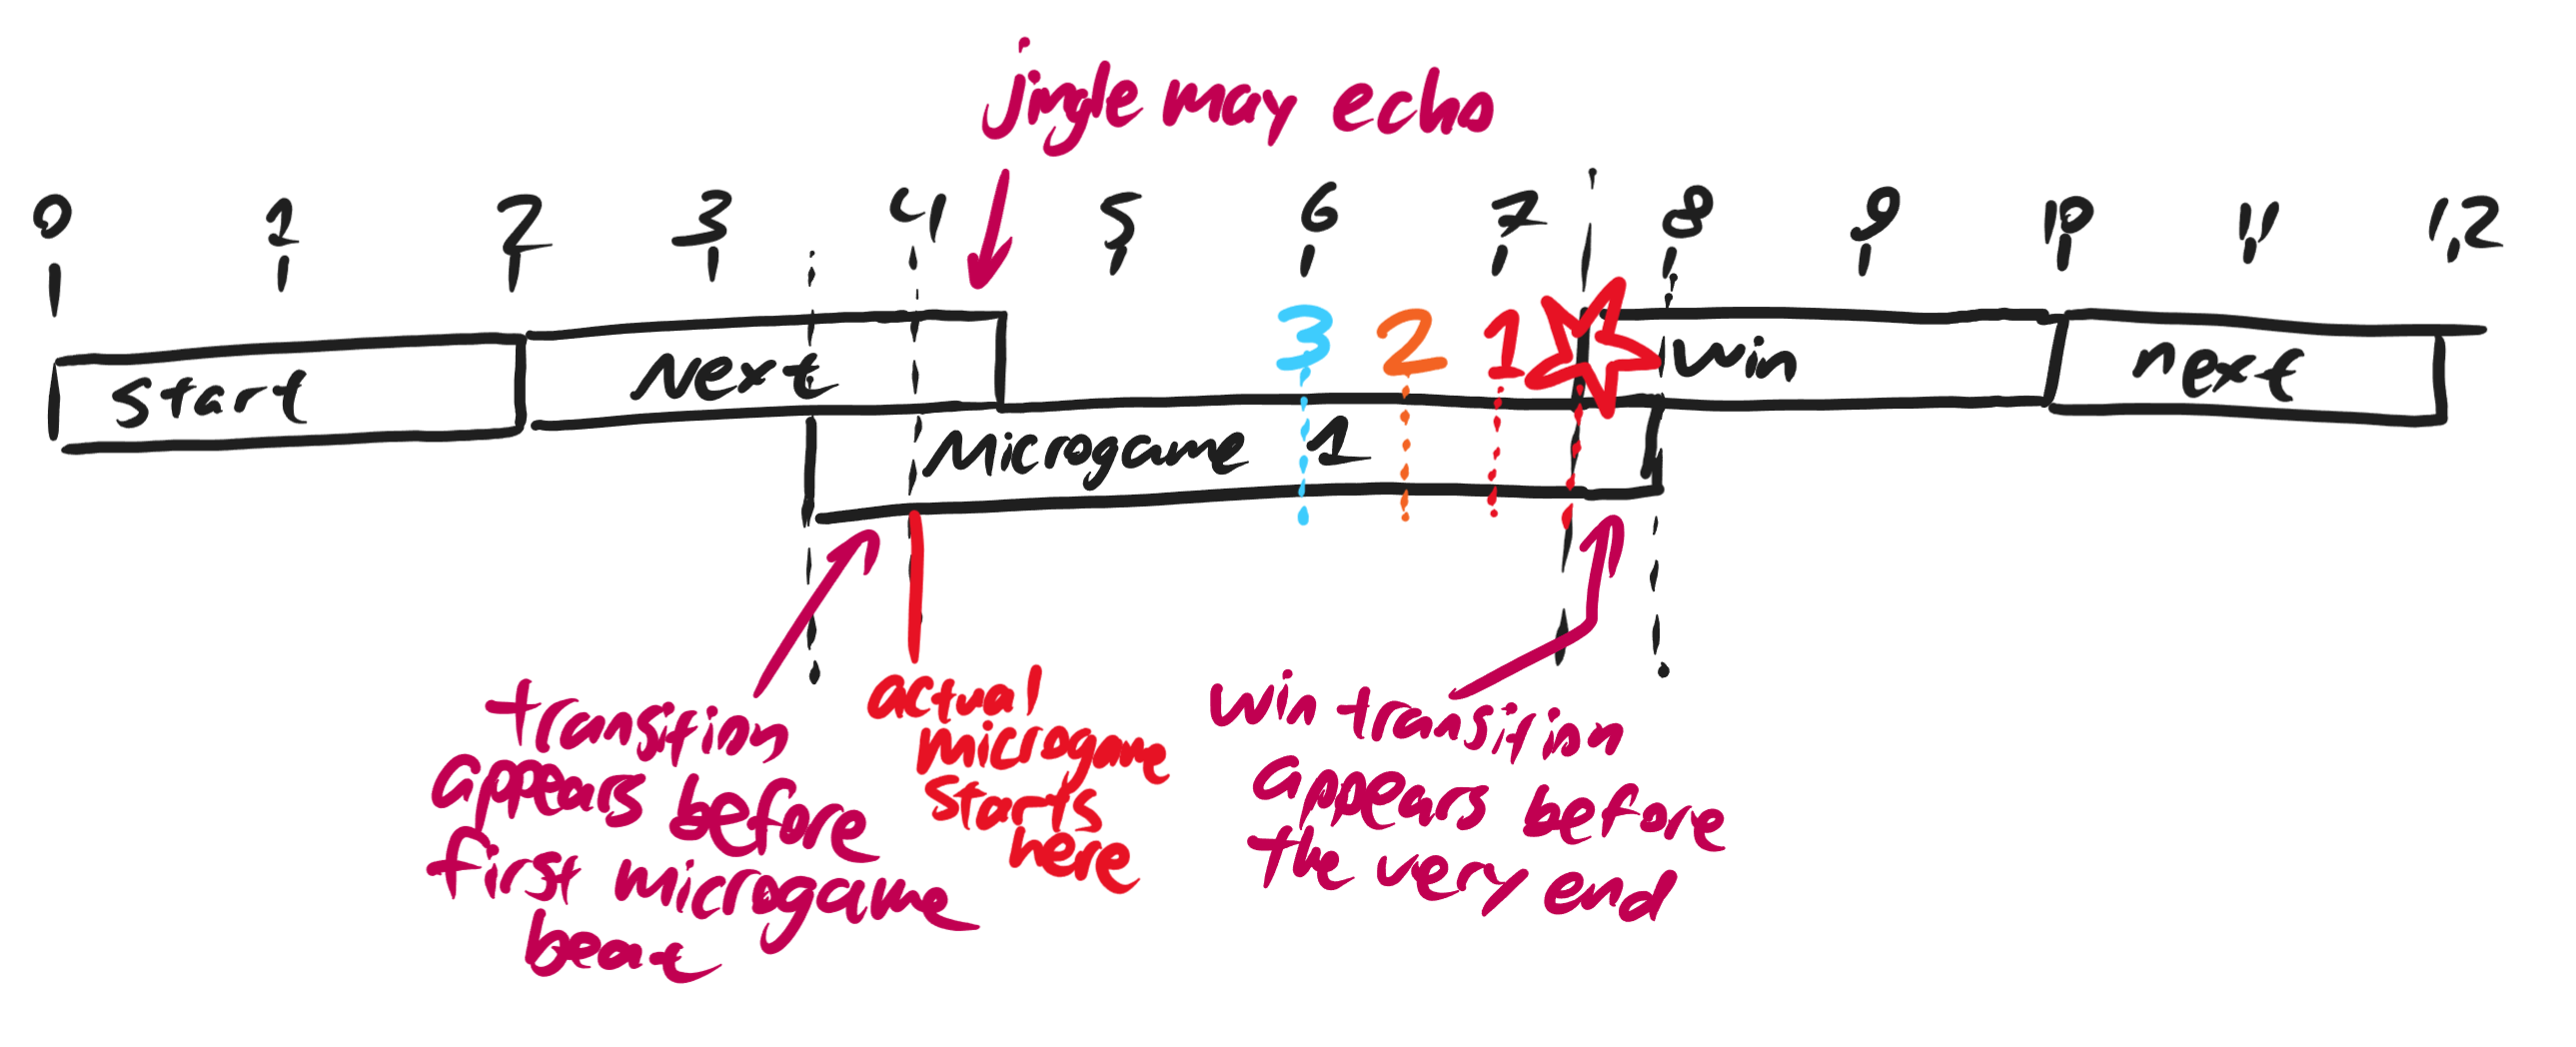 jingle may echo
0 1 2 3 4 5 6 7 8 9 10 11 12
3 2 1
start Next win next
Microgame 1
transition
appears before
first microgame
beat
actual
microgame
starts
here
win transition
appears before
the very end